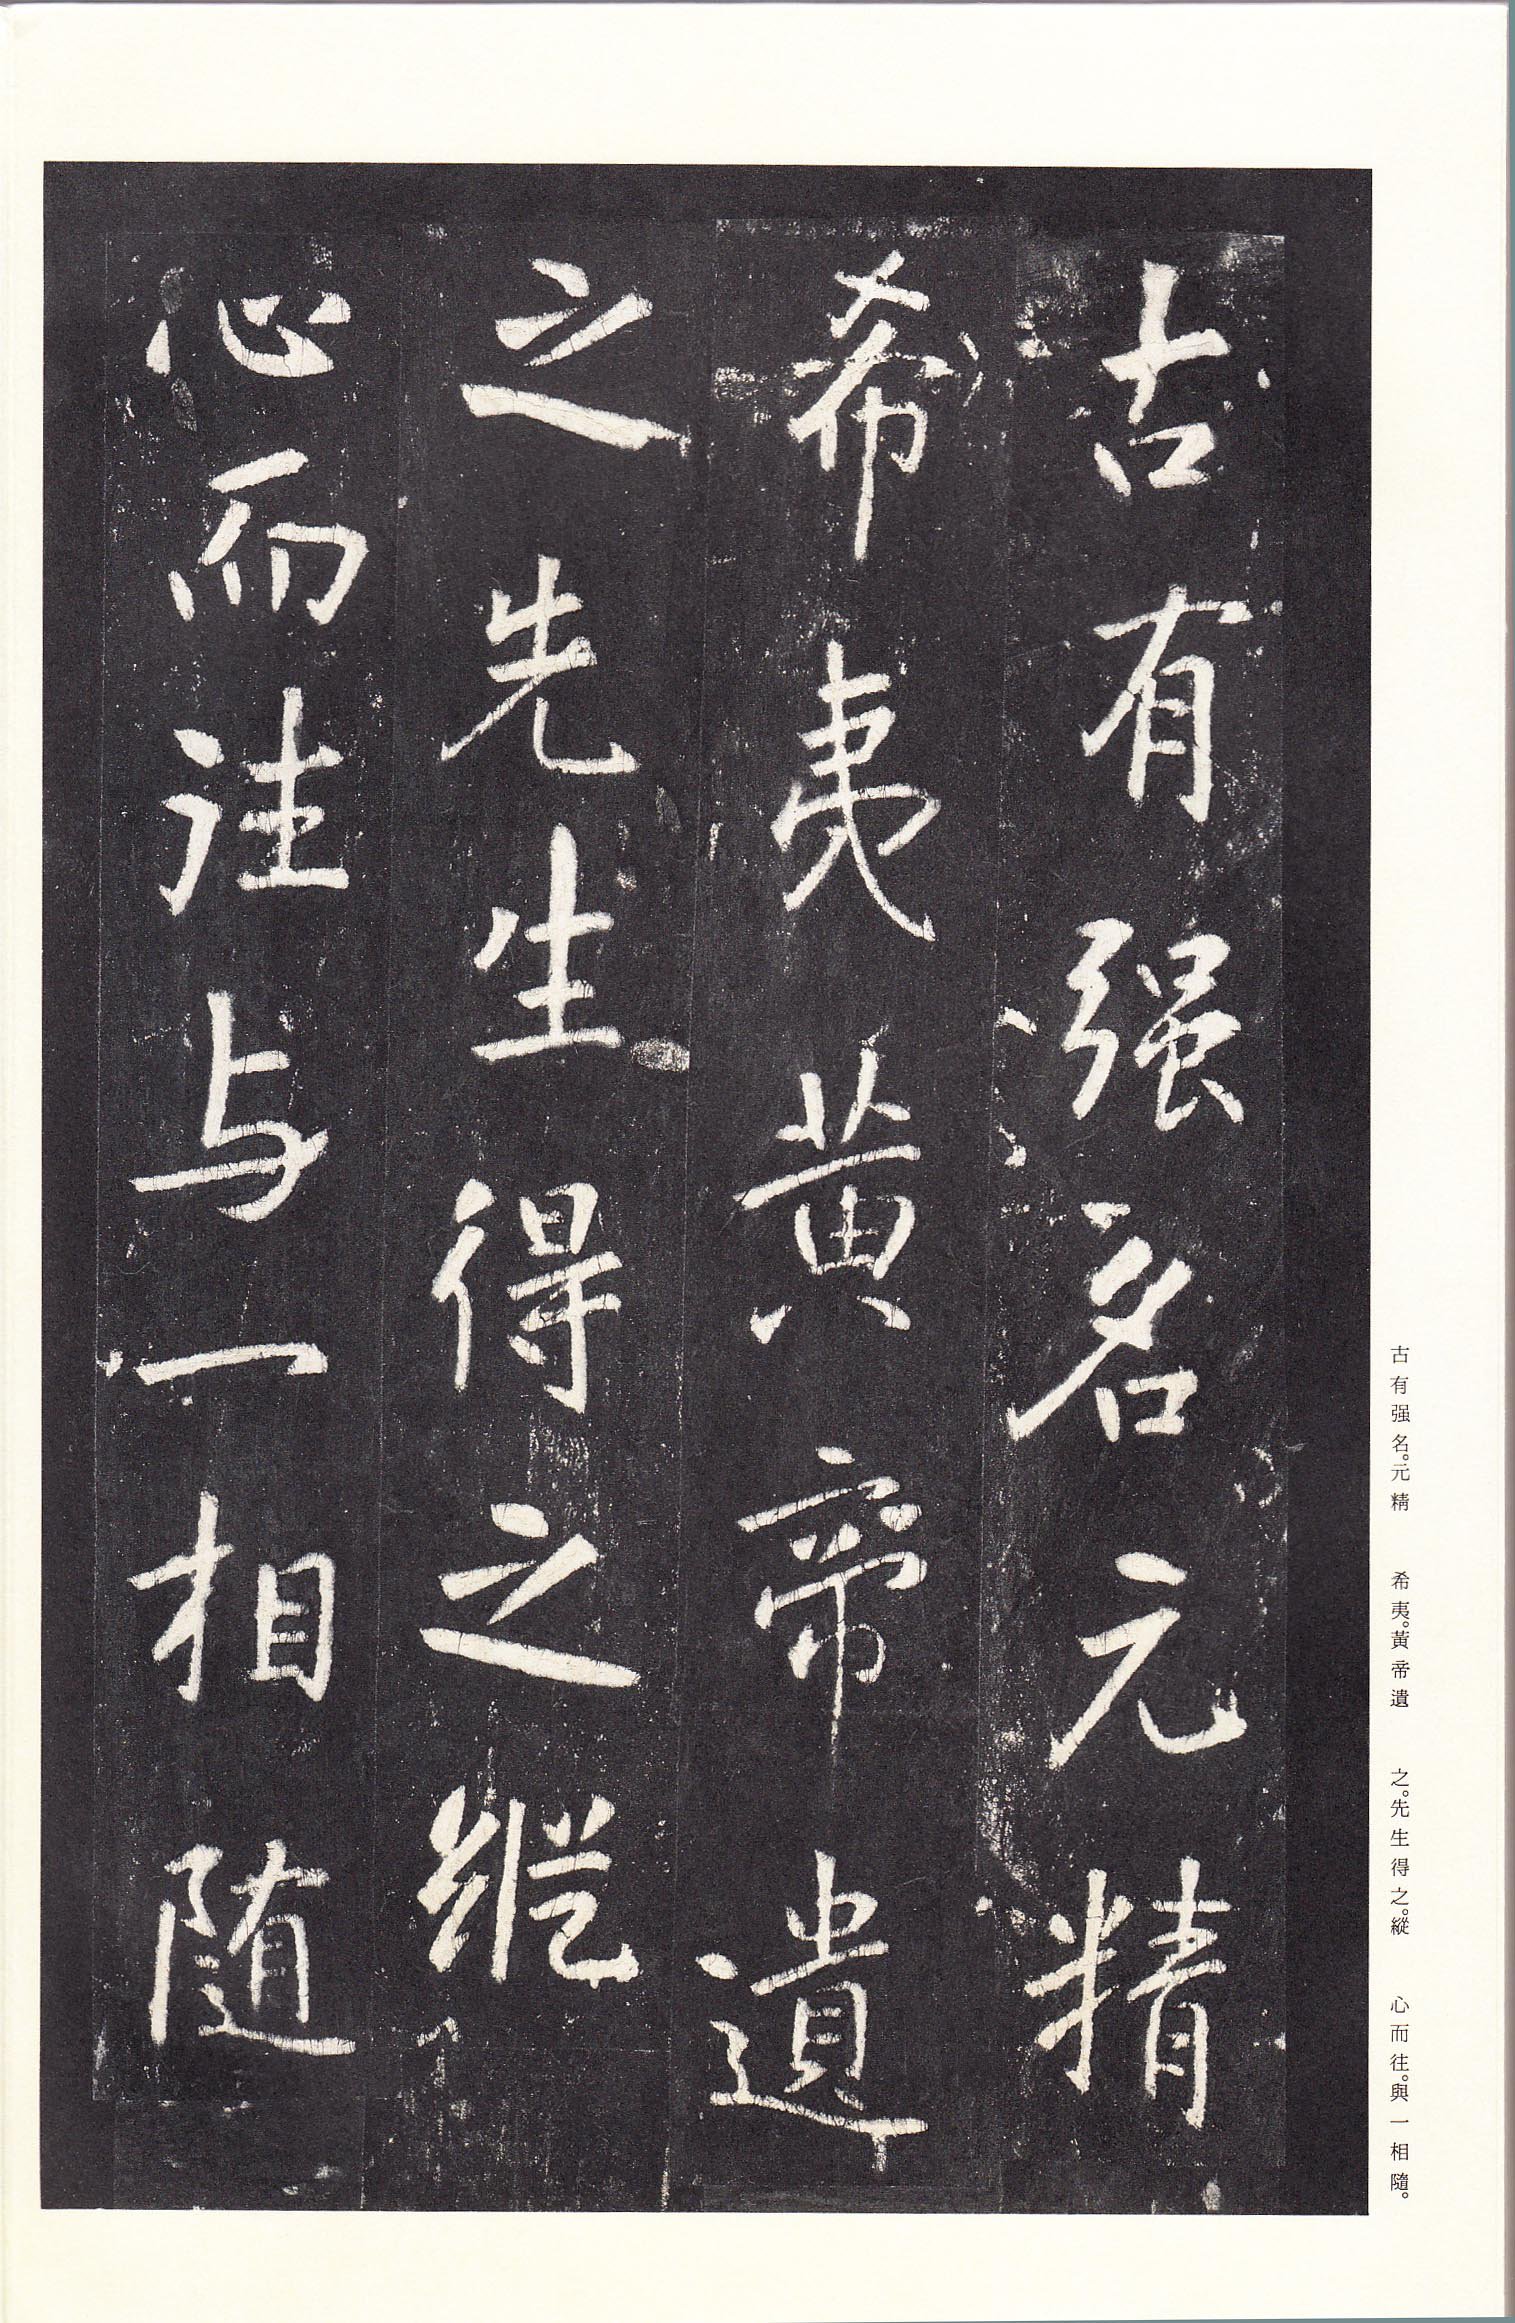 古有强名元精
希夷黄帝遺
之先生得之縱
心而往与一相
随
古有强名。元精　希夷。黃帝遺　之。先生得之。縱　心而往。與一相隨。